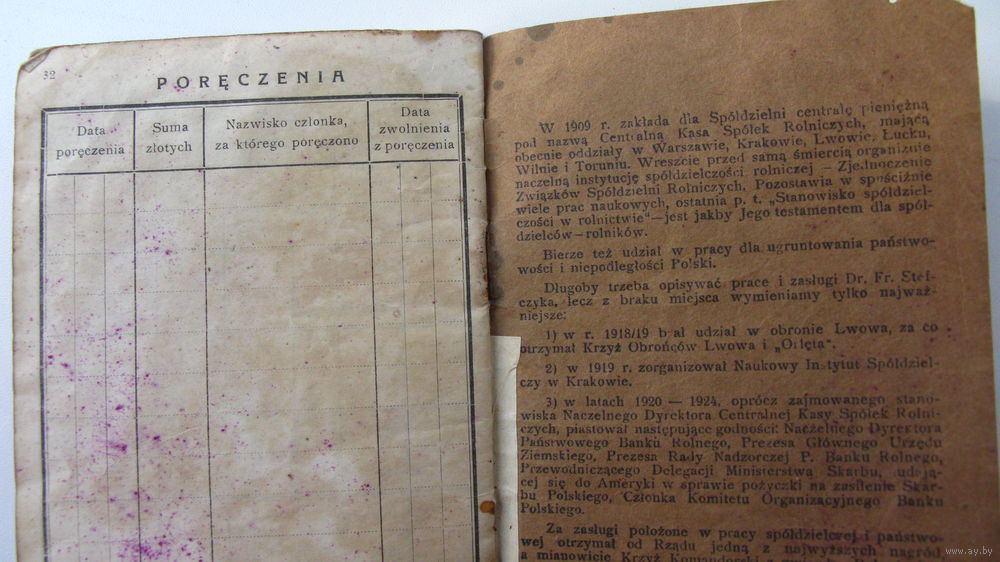 32
PORĘCZENIA
Data
poręczenia
Suma
złotych
Nazwisko członka,
za którego poręczono
Data
zwolnienia
z poręczenia
W 1909 r. zakłada dla Spółdzielni centralę pieniężną
pod nazwą Centralna Kasa Spółek Rolniczych, mającą
obecnie oddziały w Warszawie, Krakowie, Lwowie, Łucku,
Wilnie i Toruniu. Wreszcie przed samą śmiercią organizuie
naczelną instytucję spółdzielczości rolniczej — Zjednoczenie
Związków Spółdzielni Rolniczych. Pozostawia w spuściźnie
wiele prac naukowych, ostatnia p. t. „Stanowisko spółdziel-
czości w rolnictwie"—jest jakby Jego testamentem dla spół-
dzielców—rolników.
Bierze też udział w pracy dla ugruntowania państwo-
wości i niepodległości Polski.
Długoby trzeba opisywać prace i zasługi Dr. Fr. Stef-
czyka, lecz z braku miejsca wymieniamy tylko najważ-
niejsze:
1) w r. 1918/19 b ał udział w obronie Lwowa, za co
otrzymał Krzyż Obrońców Lwowa i „Orlęta".
2) w 1919 r. zorganizował Naukowy Instytut Spółdziel-
czy w Krakowie.
3) w latach 1920 — 1924, oprócz zajmowanego stano-
wiska Naczelnego Dyrektora Centralnej Kasy Spółek Rolni-
czych, piastował następujące godności: Naczelnego Dyrektora
Państwowego Banku Rolnego, Prezesa Głównego Urzędu
Ziemskiego, Prezesa Rady Nadzorczej P. Banku Rolnego,
Przewodniczącego Delegacji Ministerstwa Skarbu, udają-
cej się do Ameryki w sprawie pożyczki na zasilenie Skar-
bu Polskiego, Członka Komitetu Organizacyjnego Banku
Polskiego.
Za zasługi położone w pracy spółdzielczej i państwo-
wej otrzymał od Rządu jedną z najwyższych nagród,
a mianowicie Krzyż
www.ay.by